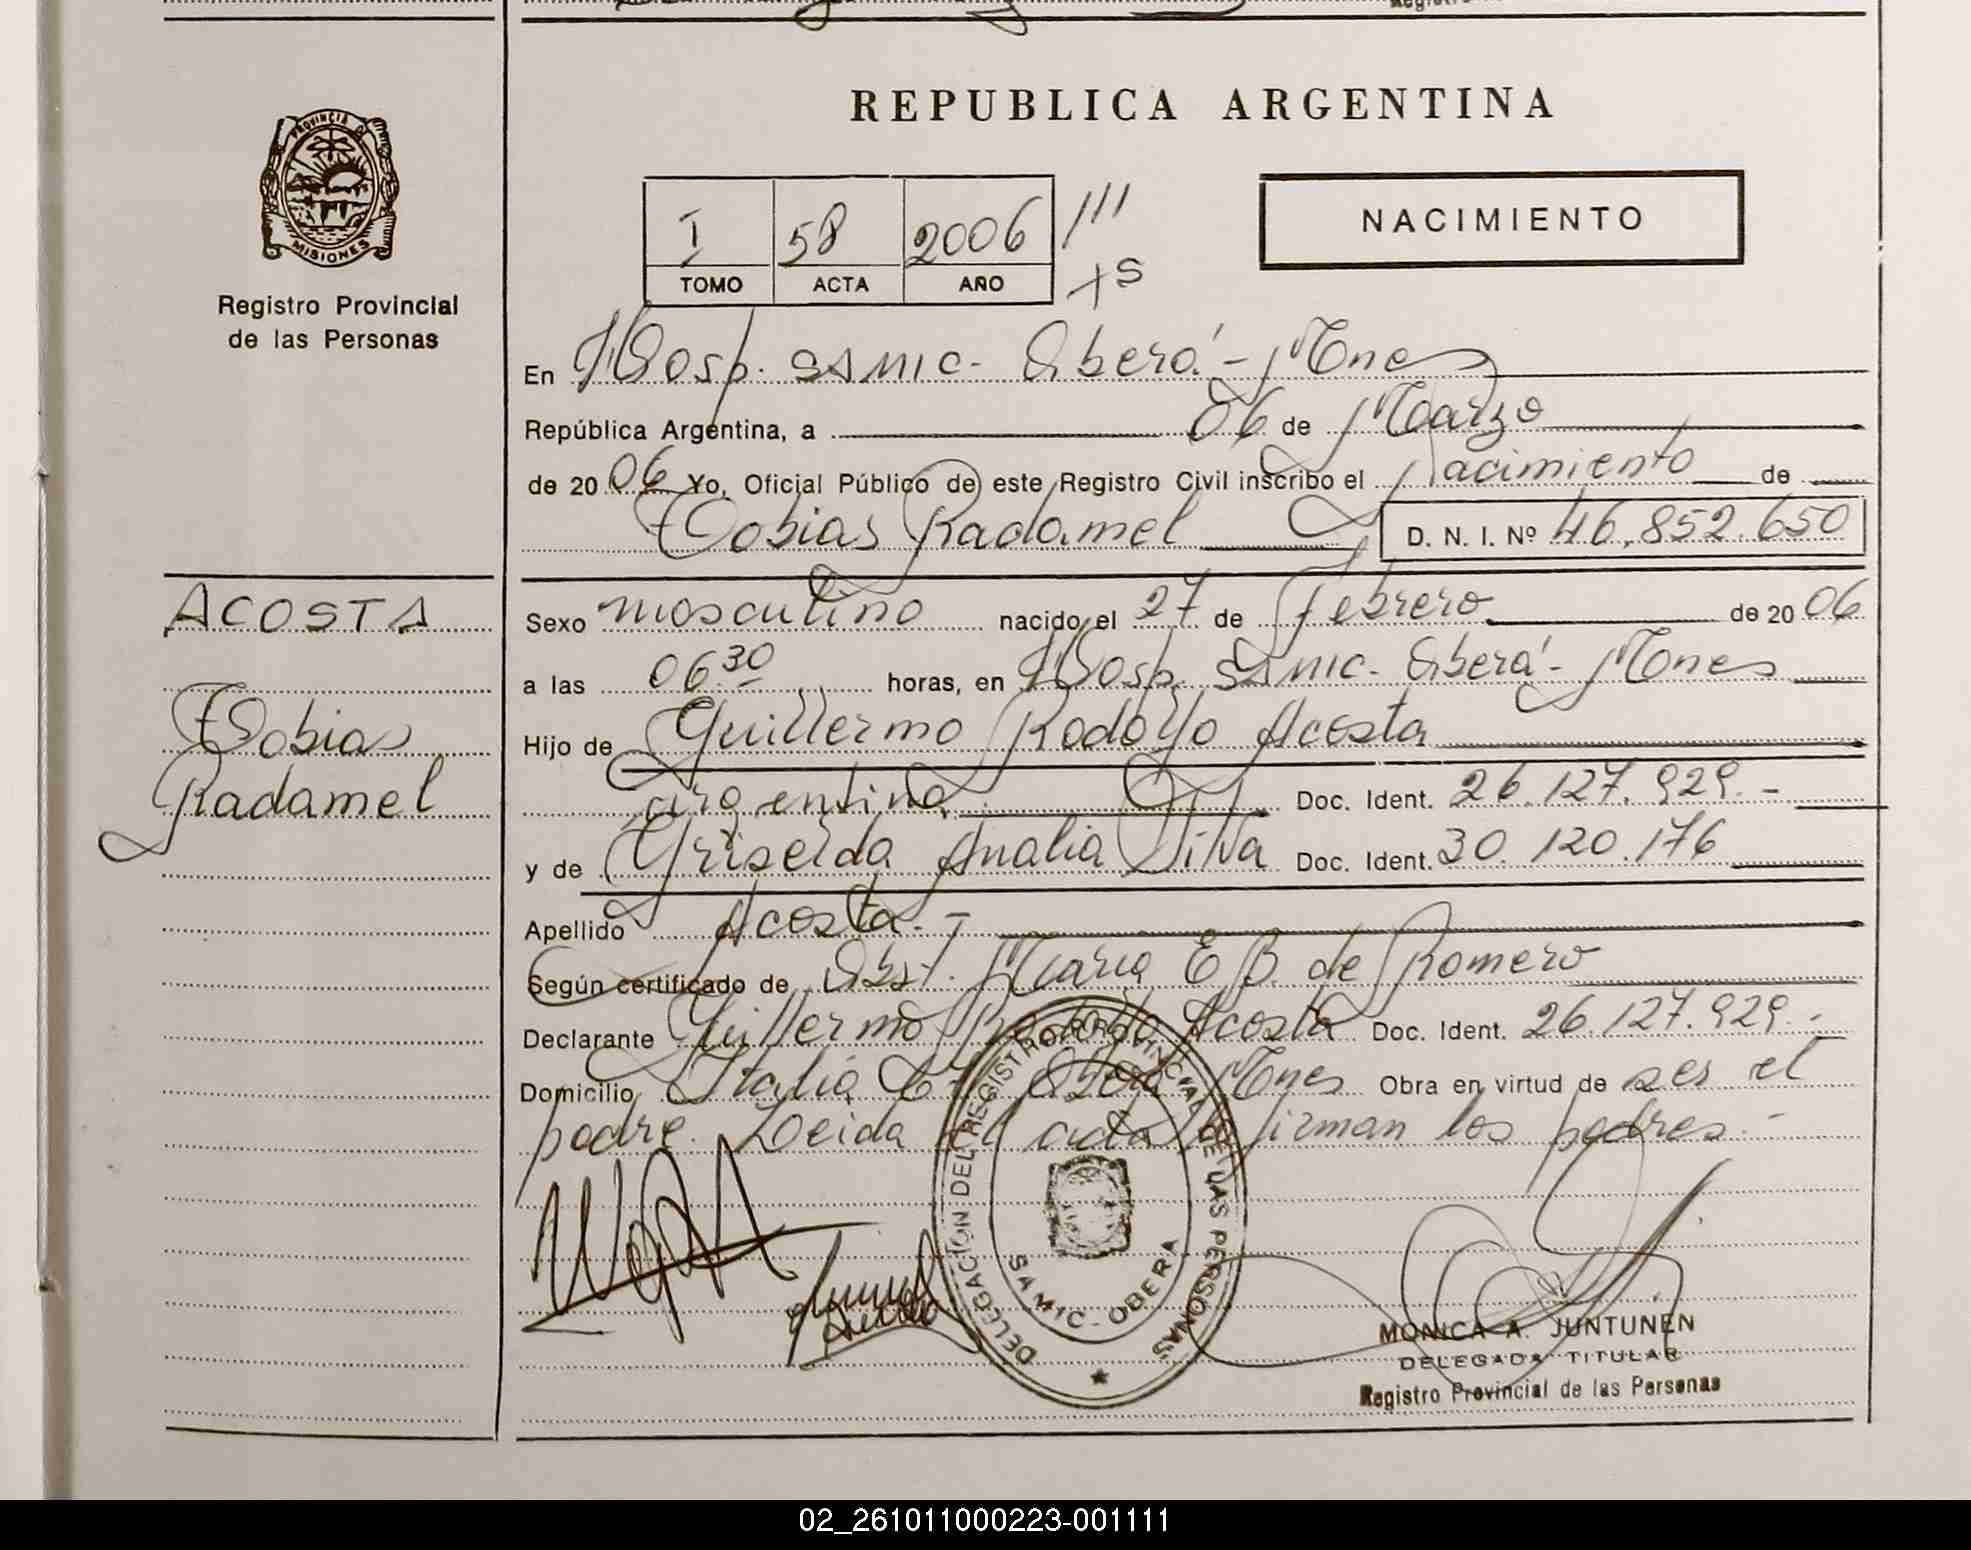 REPUBLICA ARGENTINA
PROVINCIA D
MISIONES
Registro Provincial
de las Personas
I 58 2006 ///
TOMO ACTA AÑO
+S
NACIMIENTO
En Hosp. SAMIC- Oberá- Mnes
República Argentina, a 06 de Marzo
de 2006 Yo, Oficial Público de este Registro Civil inscribo el Nacimiento de
Tobias Radamel D. N. I. Nº 46.852.650
ACOSTA
Tobias
Radamel
Sexo masculino nacido el 27 de Febrero de 2006
a las 06.30 horas, en Hosp. SAMIC- Oberá- Mnes
Hijo de Guillermo Rodolfo Acosta
argentino Doc. Ident. 26.127.929.-
y de Griselda Analia Silva Doc. Ident. 30.120.176
Apellido Acosta.-
Según certificado de Obst. Maria E B. de Romero
Declarante Guillermo Rodolfo Acosta Doc. Ident. 26.127.929.-
Domicilio Italia Oberá Mnes Obra en virtud de ser el
padre. Leida el acta la firman los padres.-
DELEGACION DEL REGISTRO PROVINCIAL DE LAS PERSONAS
SAMIC - OBERA
MONICA A. JUNTUNEN
DELEGADA TITULAR
Registro Provincial de las Personas
02_261011000223-001111